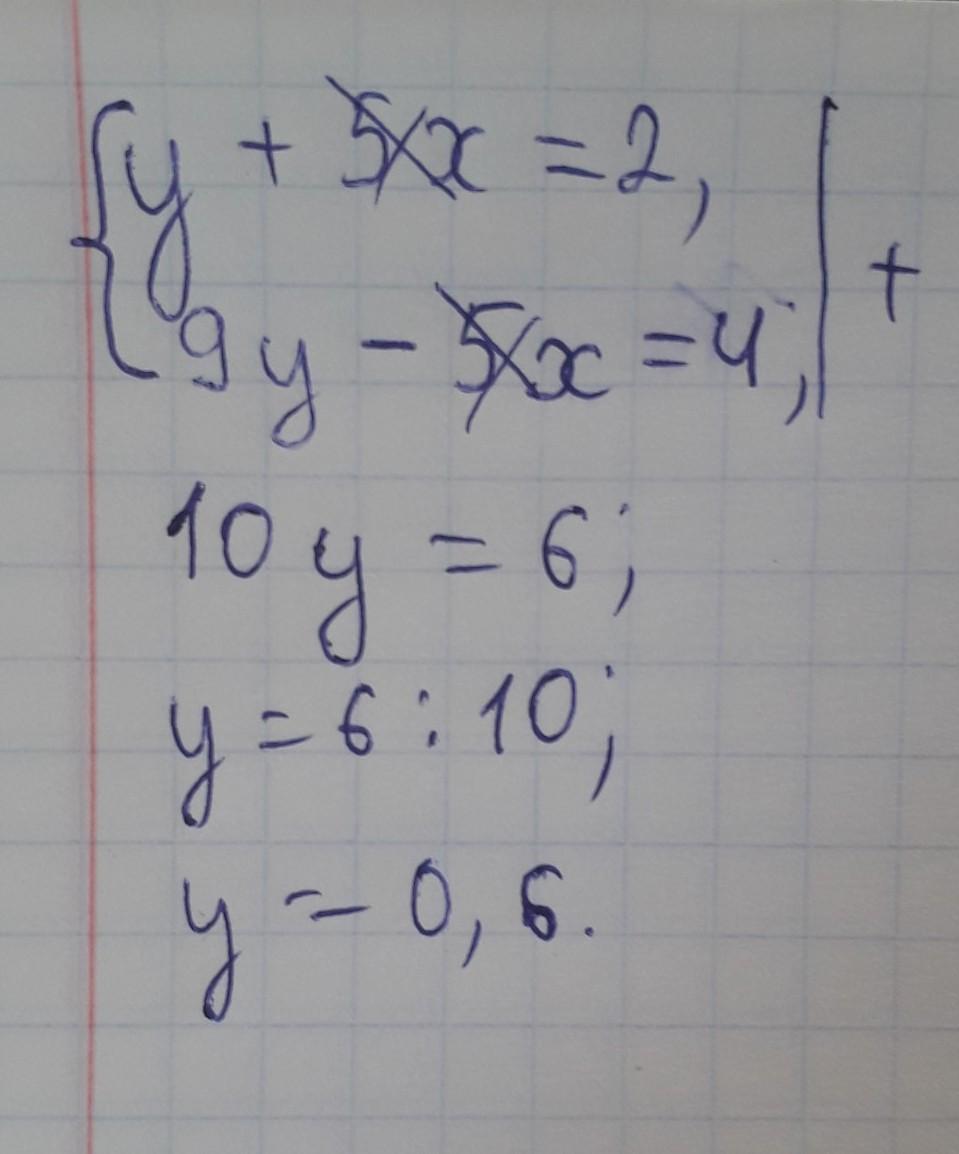 { y + 5x = 2, | +
9y - 5x = 4, |
10y = 6;
y = 6 : 10;
y = 0,6.